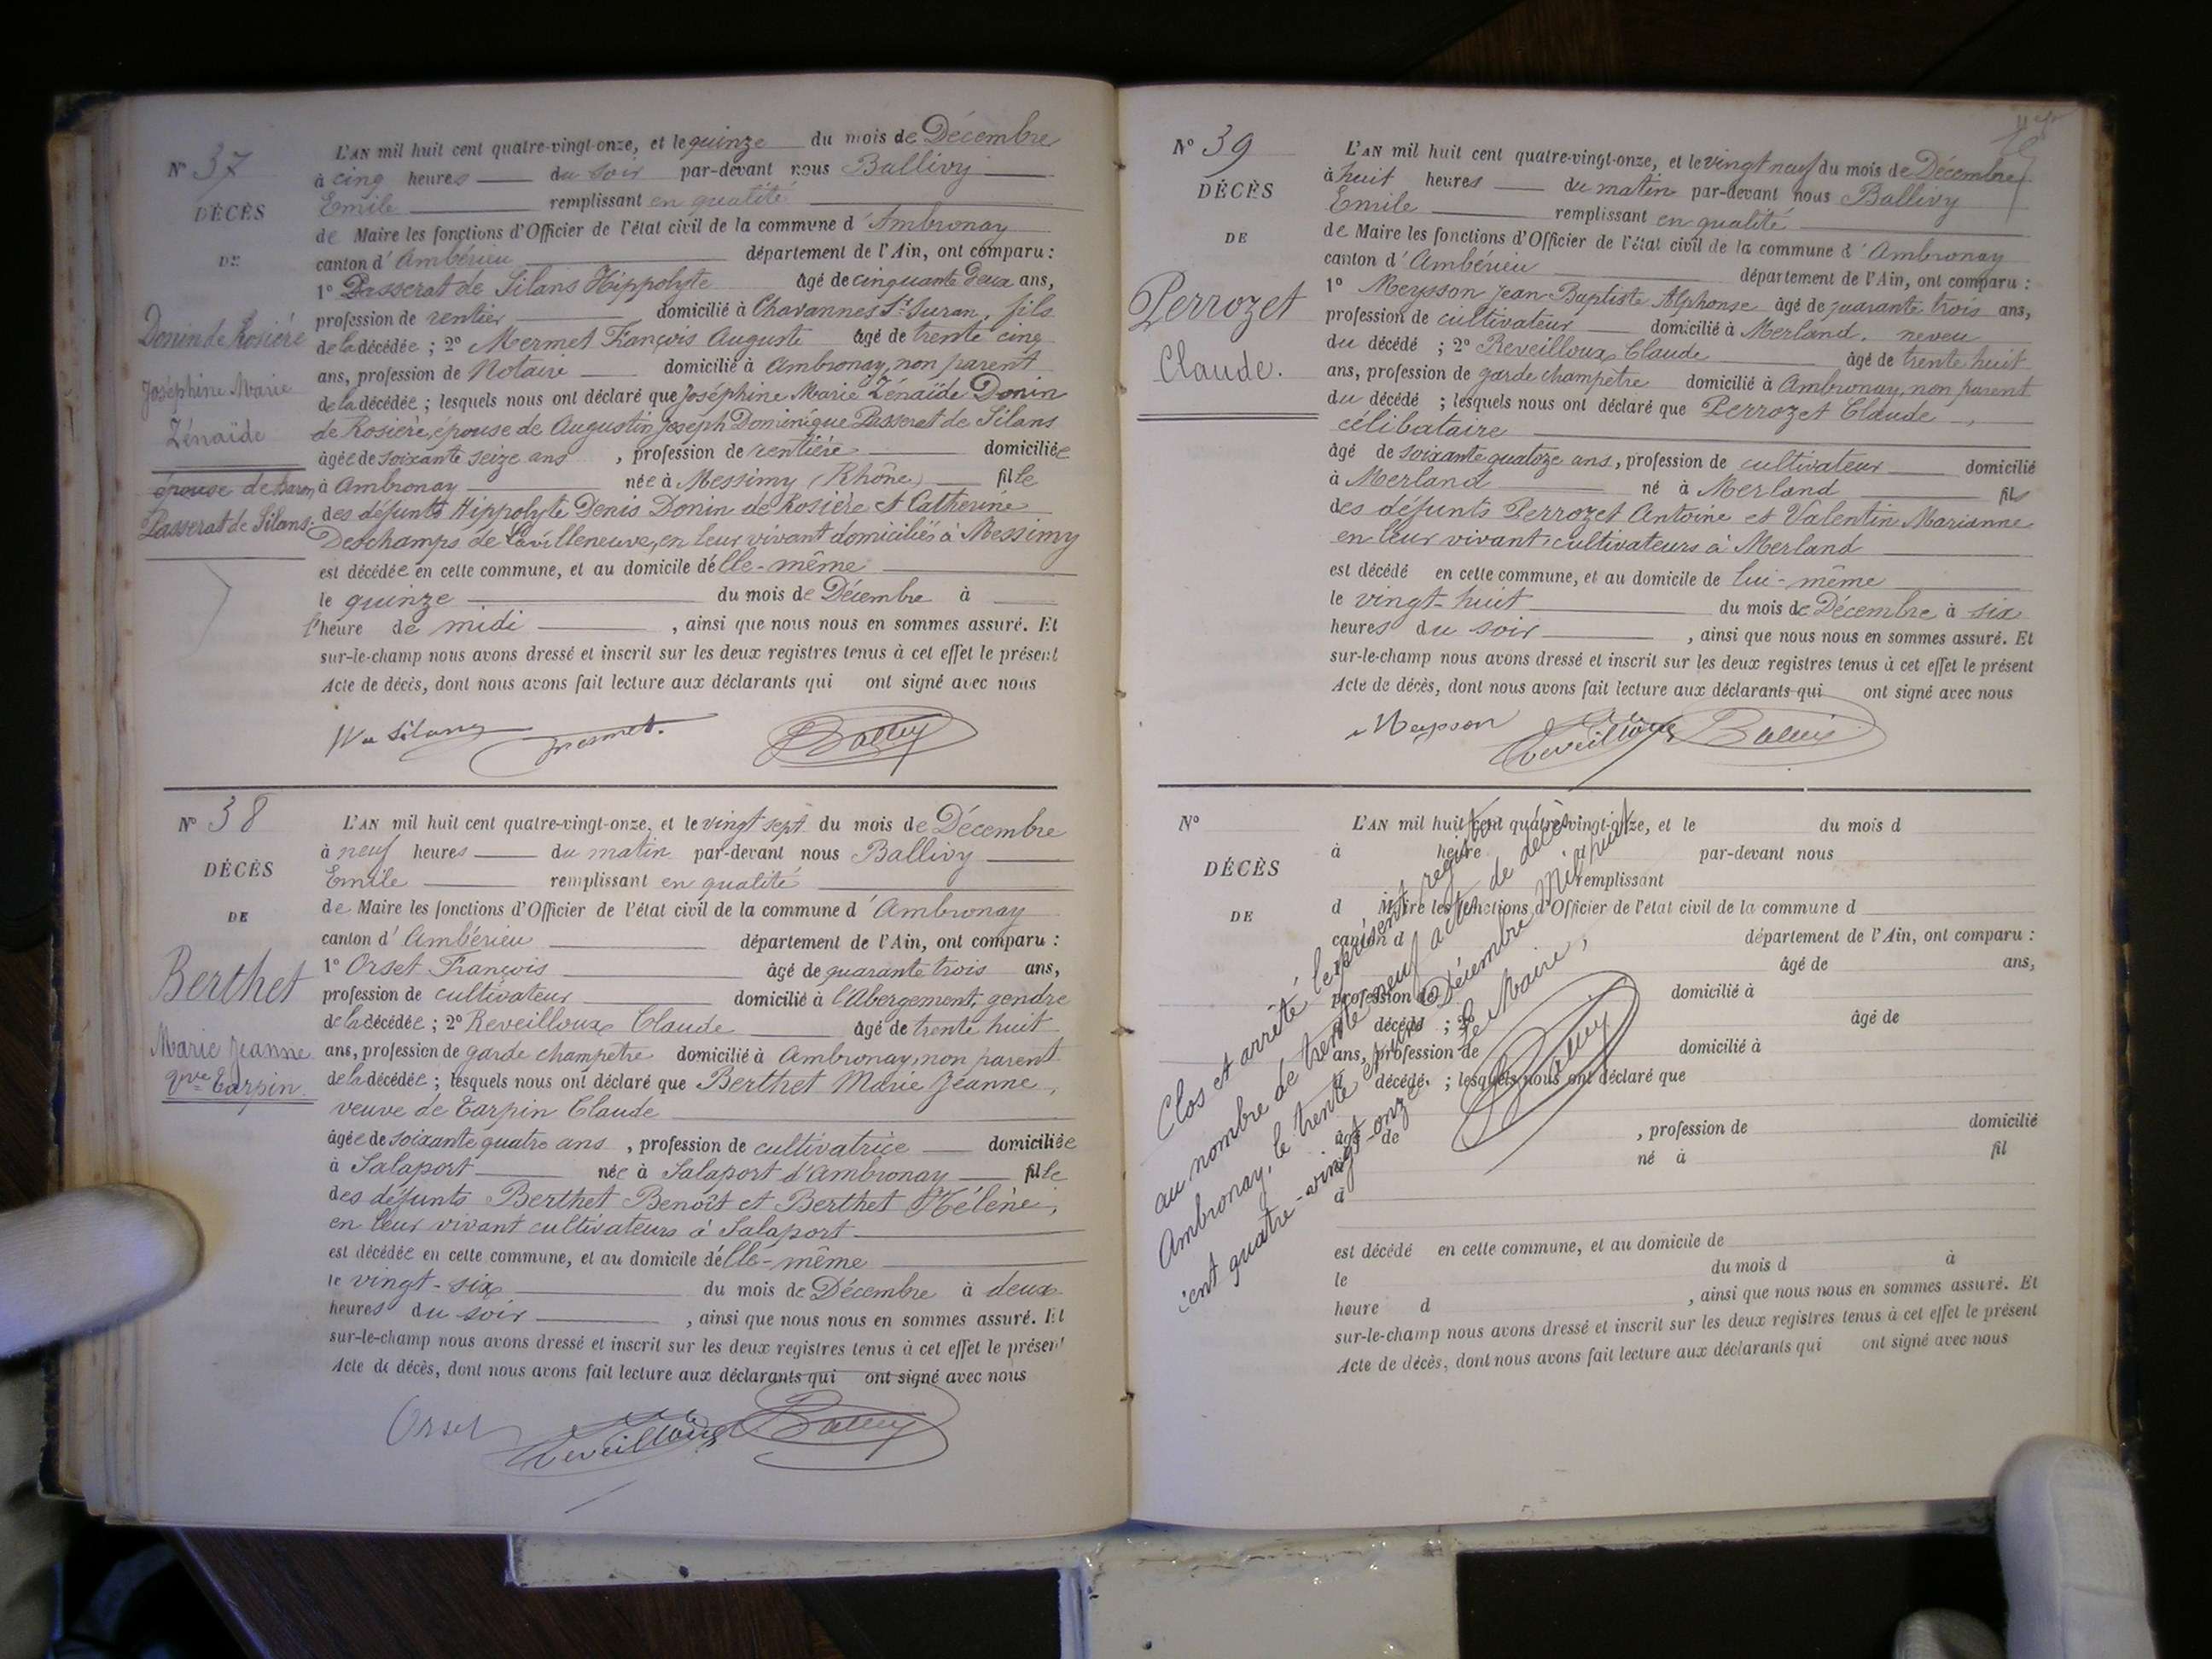 N° 37
DÉCÈS
DE
Donin de Rosière
Joséphine Marie
Zénaïde
épouse de Baron
Passerat de Silans.
L'AN mil huit cent quatre-vingt-onze, et le quinze du mois de Décembre
à cinq heures du soir par-devant nous Ballivy
Emile remplissant en qualité
de Maire les fonctions d'Officier de l'état civil de la commune d'Ambronay
canton d'Ambérieu département de l'Ain, ont comparu :
1° Passerat de Silans Hippolyte âgé de cinquante deux ans,
profession de rentier domicilié à Chavannes St Suran, fils
de la décédée ; 2° Mermet François Auguste âgé de trente cinq
ans, profession de Notaire domicilié à Ambronay, non parent
de la décédée ; lesquels nous ont déclaré que Joséphine Marie Zénaïde Donin
de Rosière, épouse de Augustin Joseph Dominique Passerat de Silans
âgée de soixante seize ans , profession de rentière domiciliée
à Ambronay née à Messimy (Rhône) fille
des défunts Hippolyte Denis Donin de Rosière et Catherine
Deschamps de Lavilleneuve, en leur vivant domiciliés à Messimy
est décédée en cette commune, et au domicile d'elle-même
le quinze du mois de Décembre à
l'heure de midi , ainsi que nous nous en sommes assuré. Et
sur-le-champ nous avons dressé et inscrit sur les deux registres tenus à cet effet le présent
Acte de décès, dont nous avons fait lecture aux déclarants qui ont signé avec nous
de Silans Mermet. Ballivy
N° 38
DÉCÈS
DE
Berthet
Marie Jeanne
Vve Tarpin.
L'AN mil huit cent quatre-vingt-onze, et le vingt sept du mois de Décembre
à neuf heures du matin par-devant nous Ballivy
Emile remplissant en qualité
de Maire les fonctions d'Officier de l'état civil de la commune d'Ambronay
canton d'Ambérieu département de l'Ain, ont comparu :
1° Orset François âgé de quarante trois ans,
profession de cultivateur domicilié à l'Abergement, gendre
de la décédée ; 2° Reveilloux Claude âgé de trente huit
ans, profession de garde champêtre domicilié à Ambronay, non parent
de la décédée ; lesquels nous ont déclaré que Berthet Marie Jeanne,
veuve de Tarpin Claude
âgée de soixante quatre ans , profession de cultivatrice domiciliée
à Salaport née à Salaport d'Ambronay fille
des défunts Berthet Benoît et Berthet Hélène,
en leur vivant cultivateurs à Salaport
est décédée en cette commune, et au domicile d'elle-même
le vingt-six du mois de Décembre à deux
heures du soir , ainsi que nous nous en sommes assuré. Et
sur-le-champ nous avons dressé et inscrit sur les deux registres tenus à cet effet le présent
Acte de décès, dont nous avons fait lecture aux déclarants qui ont signé avec nous
Orset Reveilloux Ballivy
N° 39
DÉCÈS
DE
Perrozet
Claude.
L'AN mil huit cent quatre-vingt-onze, et le vingt neuf du mois de Décembre
à huit heures du matin par-devant nous Ballivy
Emile remplissant en qualité
de Maire les fonctions d'Officier de l'état civil de la commune d'Ambronay
canton d'Ambérieu département de l'Ain, ont comparu :
1° Meysson Jean Baptiste Alphonse âgé de quarante trois ans,
profession de cultivateur domicilié à Merland, neveu
du décédé ; 2° Reveilloux Claude âgé de trente huit
ans, profession de garde champêtre domicilié à Ambronay, non parent
du décédé ; lesquels nous ont déclaré que Perrozet Claude,
célibataire
âgé de soixante quatoze ans, profession de cultivateur domicilié
à Merland né à Merland fils
des défunts Perrozet Antoine et Valentin Marianne
en leur vivant cultivateurs à Merland
est décédé en cette commune, et au domicile de lui-même
le vingt-huit du mois de Décembre à six
heures du soir , ainsi que nous nous en sommes assuré. Et
sur-le-champ nous avons dressé et inscrit sur les deux registres tenus à cet effet le présent
Acte de décès, dont nous avons fait lecture aux déclarants qui ont signé avec nous
Meysson Reveilloux Ballivy
N°
DÉCÈS
DE
L'AN mil huit cent quatre-vingt-onze, et le du mois d
à heure d par-devant nous
remplissant
d Maire les fonctions d'Officier de l'état civil de la commune d
canton d département de l'Ain, ont comparu :
âgé de ans,
profession de domicilié à
d décédé ; 2° âgé de
ans, profession de domicilié à
d décédé ; lesquels nous ont déclaré que
âgé de , profession de domicilié
à né à fil
est décédé en cette commune, et au domicile de
le du mois d à
heure d , ainsi que nous nous en sommes assuré. Et
sur-le-champ nous avons dressé et inscrit sur les deux registres tenus à cet effet le présent
Acte de décès, dont nous avons fait lecture aux déclarants qui ont signé avec nous
Clos et arrêté le présent registre
au nombre de trente neuf actes de décès
Ambronay, le trente et un Décembre Mil huit
cent quatre-vingt-onze
Le Maire,
Ballivy